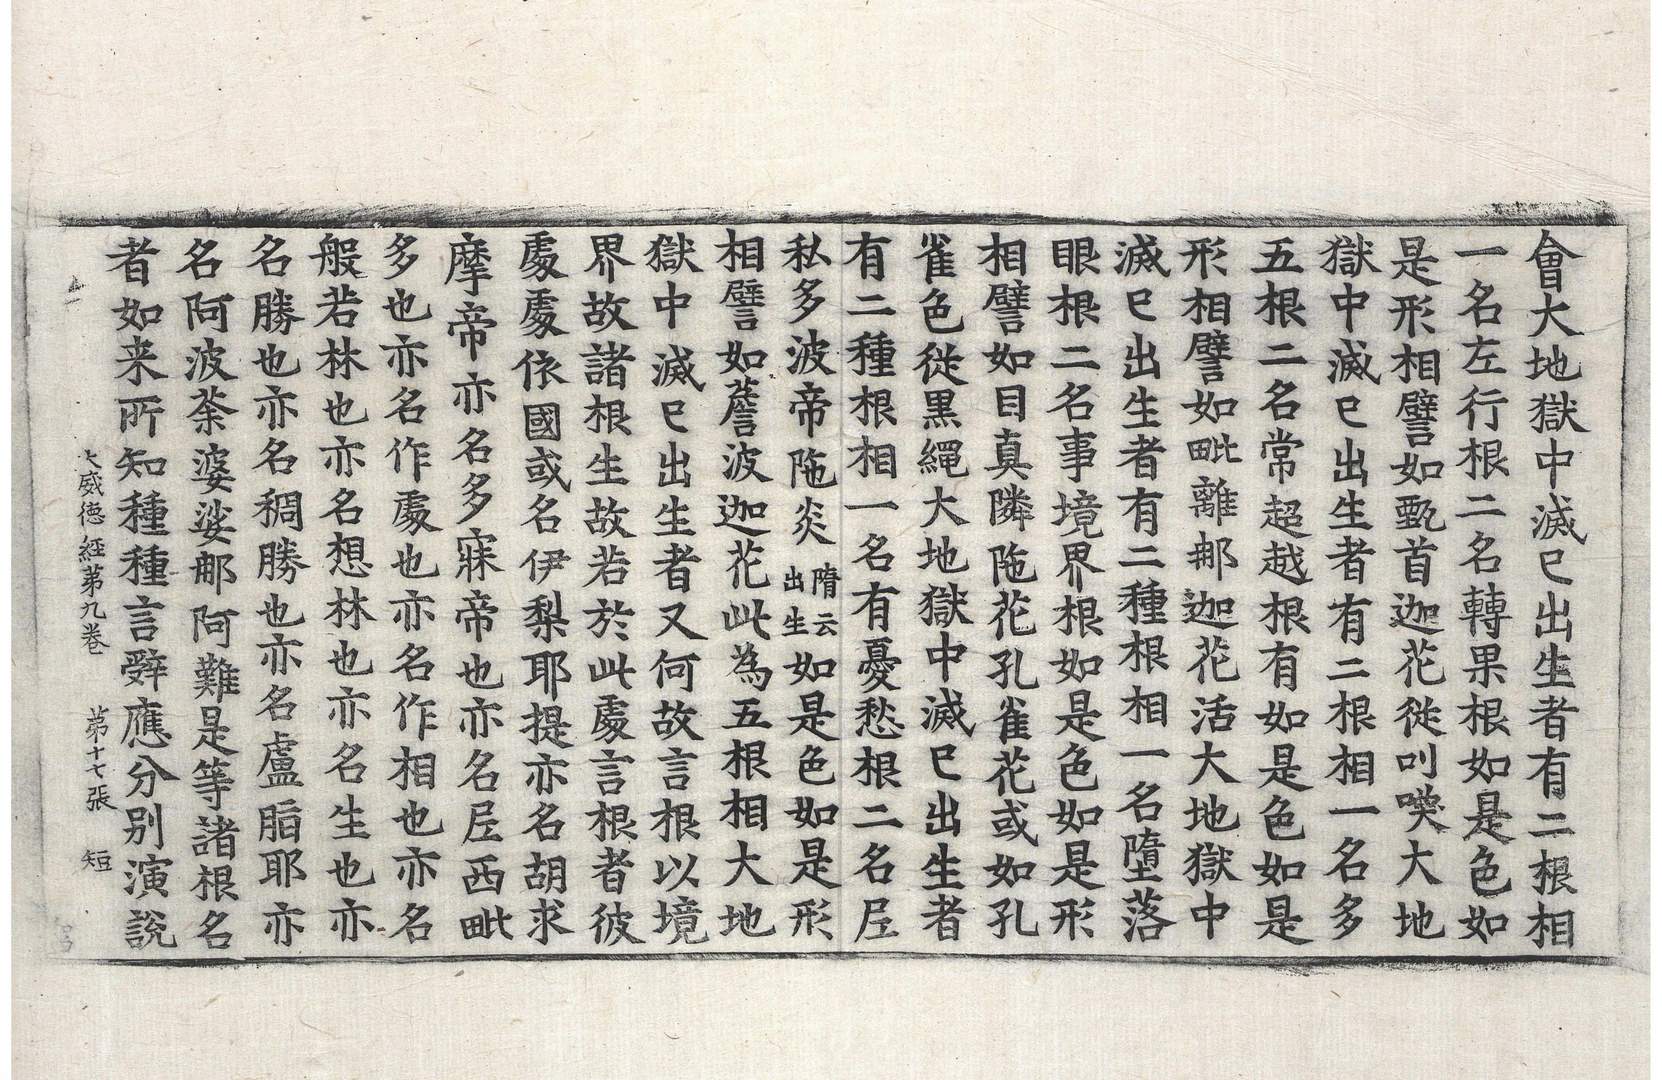 會大地獄中滅已出生者有二根相
一名左行根二名轉果根如是色如
是形相譬如甄首迦花從叫喚大地
獄中滅已出生者有二根相一名多
五根二名常超越根有如是色如是
形相譬如毗離那迦花活大地獄中
滅已出生者有二種根相一名墮落
眼根二名事境界根如是色如是形
相譬如目真隣陁花孔雀花或如孔
雀色從黑繩大地獄中滅已出生者
有二種根相一名有憂愁根二名尼
私多波帝陁炎隋云出生如是色如是形
相譬如薝波迦花此為五根相大地
獄中滅已出生者又何故言根以境
界故諸根生故若於此處言根者彼
處處依國或名伊梨耶提亦名胡求
摩帝亦名多寐帝也亦名尼西毗
多也亦名作處也亦名作相也亦名
般若林也亦名想林也亦名生也亦
名勝也亦名稠勝也亦名盧脂耶亦
名阿波荼婆娑那阿難是等諸根名
者如来所知種種言辤應分別演說
大威德經第九卷 第十七張 短